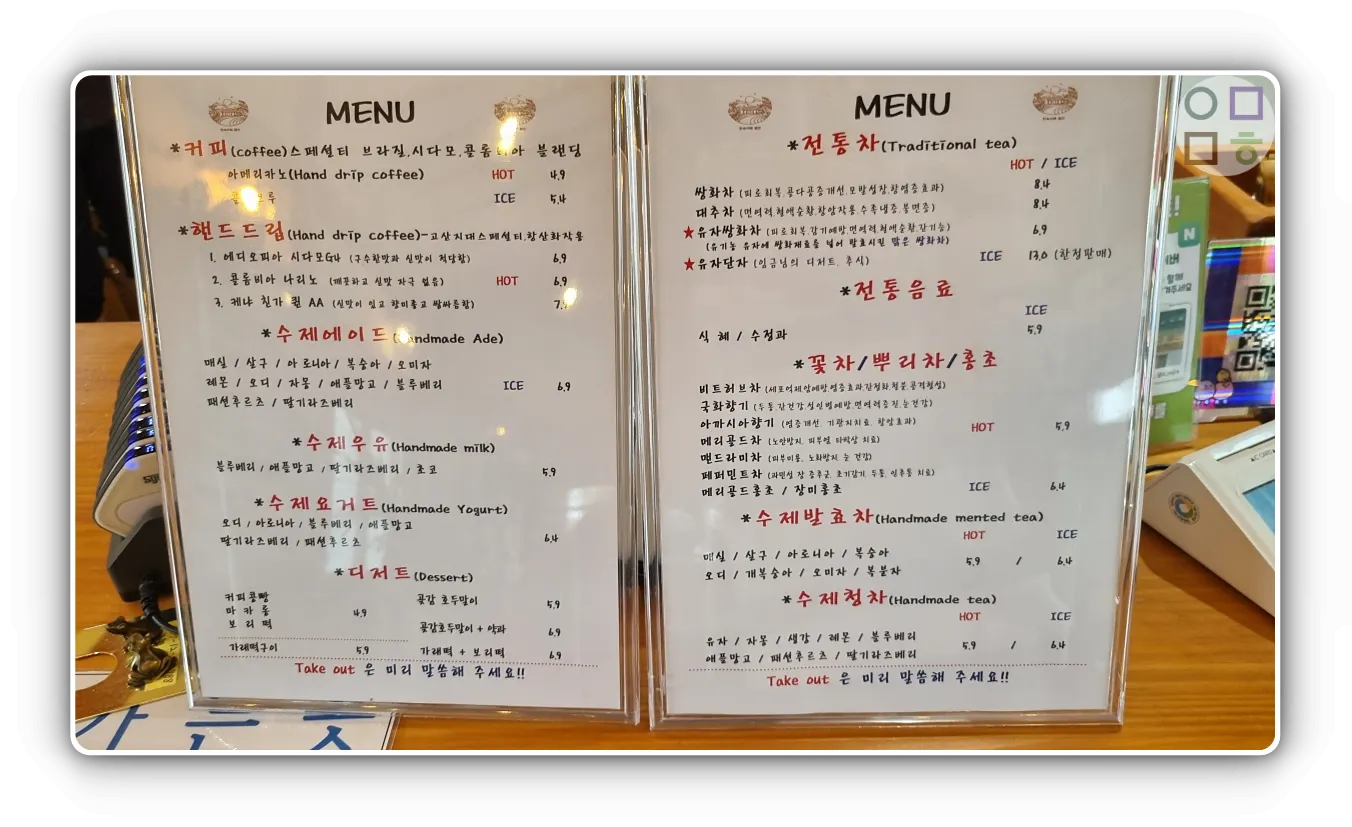 MENU
*커피(coffee)스페셜티 브라질,시다모,콜롬비아 블랜딩
아메리카노(Hand drip coffee) HOT 4.9
ICE 5.4
*핸드드립(Hand drip coffee)-고산지대스페셜티,항산화작용
1. 에디오피아 시다모G4 (구수한맛과 신맛이 적당함) 6.9
2. 콜롬비아 나리노 (깨끗하고 신맛 자극 없음) HOT 6.9
3. 케냐 칠가 퀸 AA (신맛이 있고 향미좋고 쌉싸름함)
*수제에이드(Handmade Ade)
매실 / 살구 / 아로니아/ 복숭아 / 오미자
레몬 / 오디 / 자몽 / 애플망고 / 블루베리 ICE 6.9
패션후르츠 / 딸기라즈베리
*수제우유(Handmade milk)
블루베리 / 애플망고 / 딸기라즈베리 / 초코 5.9
*수제요거트(Handmade Yogurt)
오디 / 아로니아 / 블루베리 / 애플망고
딸기라즈베리 / 패션후르츠 6.4
*디저트(Dessert)
커피콩빵
마카롱 4.9
보리떡
가래떡구이 5.9
곶감 호두말이 5.9
곶감호두말이 + 약과 6.9
가래떡 + 보리떡 6.9
Take out 은 미리 말씀해 주세요!!
MENU
*전통차(Traditional tea)
HOT / ICE
쌍화차 (피로회복,골다공증개선,모발성장,항염증효과) 8.4
대추차 (면역력,혈액순환,항암작용,수족냉증,불면증) 8.4
★유자쌍화차 (피로회복,감기예방,면역력,혈액순환,간기능) 6.9
(유기농 유자에 쌍화재료를 넣어 발효시킨 맑은 쌍화차)
★유자단자 (임금님의 디저트, 후식) ICE 13.0 (한정판매)
*전통음료
ICE
식혜 / 수정과 5.9
*꽃차/뿌리차/홍초
비트허브차 (세포억제암예방,염증효과,간정화,철분,골격형성)
국화향기 (두통,간건강,성인병예방,면역력증진,눈건강)
아까시아향기 (염증개선, 기관지치료, 항암효과) HOT 5.9
메리골드차 (노안방지, 피부염 타박상 치료)
맨드라미차 (피부미용, 노화방지, 눈 건강)
페퍼민트차 (과민성 장 증후군, 초기감기, 두통, 인후통 치료)
메리골드홍초 / 장미홍초 ICE 6.4
*수제발효차(Handmade mented tea)
HOT ICE
매실 / 살구 / 아로니아 / 복숭아
오디 / 개복숭아 / 오미자 / 복분자 5.9 / 6.4
*수제청차(Handmade tea)
HOT ICE
유자 / 자몽 / 생강 / 레몬 / 블루베리
애플망고 / 패션후르츠 / 딸기라즈베리 5.9 / 6.4
Take out 은 미리 말씀해 주세요!!
N